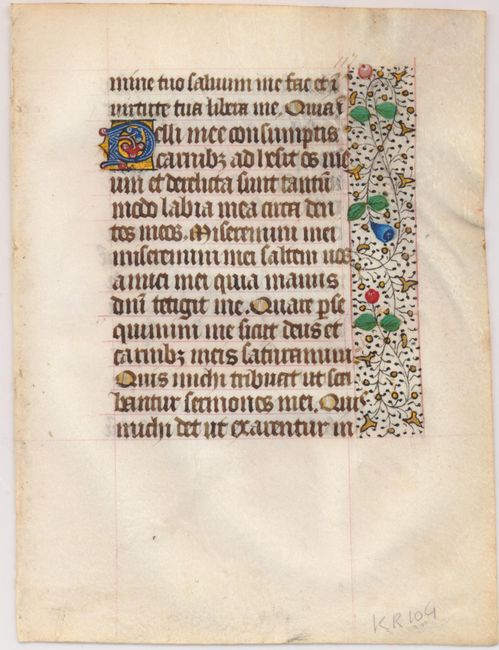 mine tuo saluum me fac et i
uirtute tua libera me. Quia ī
Pelli mee consumptis
carnibꝫ adhesit os me
um et derelicta sunt tantū
modo labia mea circa den
tes meos. Miseremini mei
miseremini mei saltem uos
amici mei quia manus
dnī tetigit me. Quare ꝑse
quimini me sicut deus et
carnibꝫ meis saturamini
Quis michi tribuat ut scri
bantur sermones mei. Quis
michi det ut exarentur in
KR 104